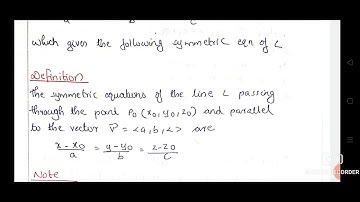 a b c
which gives the following symmetric eqn of L
Definition
The symmetric equations of the line L passing
through the point P₀ (x₀, y₀, z₀) and parallel
to the vector V⃗ = <a, b, c> are
x - x₀ / a = y - y₀ / b = z - z₀ / c
Note
RECORDER